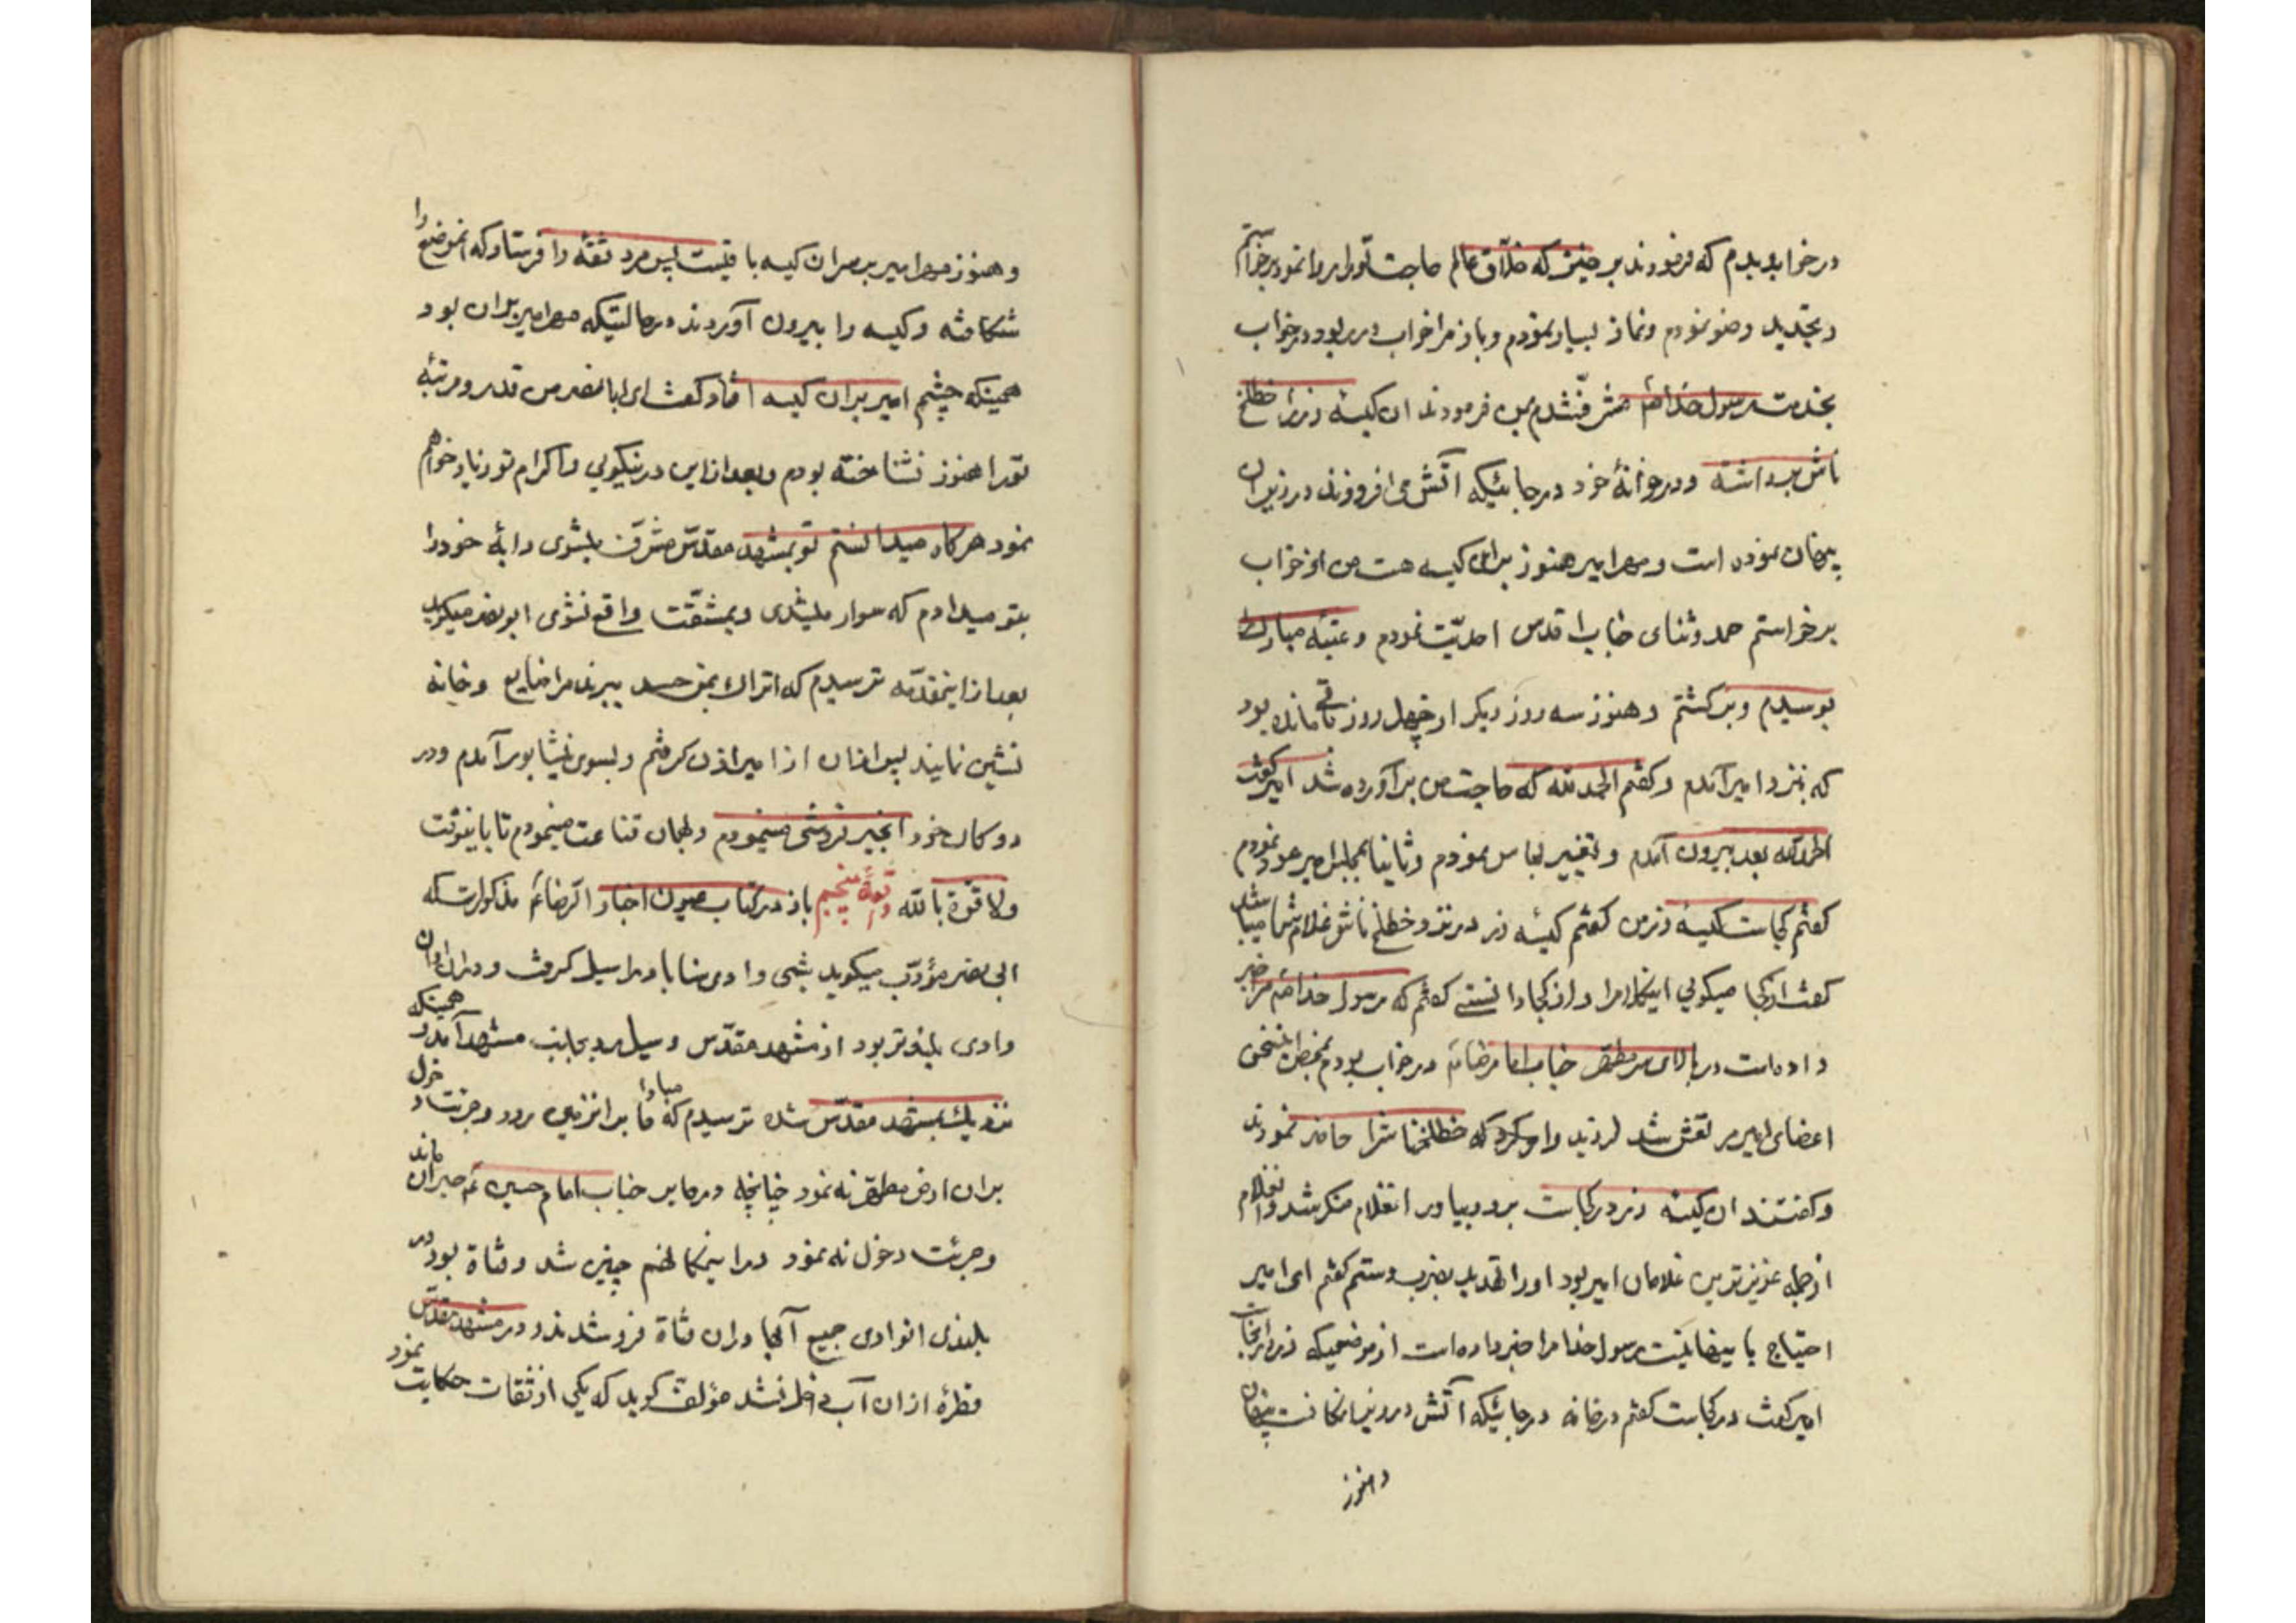 در خواب دیدم که فرمودند برخیز که خلاق عالم حاجت تو را روا نمود برخواستم
و تجدید وضو نمودم و نماز بسیار نمودم و باز مرا خواب در ربود در خواب
بخدمت رسول خدا مشرف شدم بمن فرمودند ان کیسهٔ زر را خطلخ
تاش برداشته و در خوانهٔ خود در جائیکه اتش می افروزند در زیر ان
پنهان نموده است و مهر امیر هنوز بر ان کیسه هست من از خواب
برخواستم حمد و ثنای جناب اقدس احدیّت نمودم و عتبهٔ مبارکه را
بوسیدم و برگشتم و هنوز سه روز دیکر از چهل روز باقی مانده بود
که بنزد امیر آمدم و کفتم الحمد لله که حاجت من برآورده شد امیر کفت
الحمد لله بعد بیرون آمدم و تغییر لباس نمودم و ثانیا بمجلس امیر عود نمودم
کفتم کجاست کیسهٔ زر من کفتم کیسهٔ زر در نزد خطلخ تاش غلام شما میباشد
کفت از کجا میکوئی اینکلام را و از کجا دانستی کفتم که رسول خدا مرا خبر
داده است در بالای سر مطهر جناب امام رضا در خواب بودم بمحض اینسخن
اعضای امیر مرتعش شد لرزید و امر کرد که خطلختاش را حاضر نمودند
و کفتند ان کیسهٔ زر در کجاست برو بیاور انغلام منکر شد و انغلام
از جمله عزیزترین غلامان امیر بود او را تهدید بضرب و ستم کفتم ای امیر
احتیاج باینها نیست رسول خدا مرا خبر داده است از موضعیکه زر در انجاست
امیر کفت در کجاست کفتم در خانه در جائیکه آتش در زیر انمکانست پنهان
و هنوز
و هنوز مهر امیر بر سر ان کیسه باقیست پس مرد ثقه را فرستاد که انموضع را
شکافته و کیسه را بیرون آوردند در حالتیکه مهر امیر بر ان بود
همینکه چشم امیر بر ان کیسه افتاد کفت ای ابا نصر من قدر و مرتبهٔ
تو را هنوز نشناخته بودم و بعد از این در نیکوئی و اکرام تو زیاد خواهم
نمود هر کاه میدانستم تو بمشهد مقدس مشرف میشوی دابهٔ خود را
بتو میدادم که سوار میشدی و بمشقت واقع نشوی ابو نصر میکوید
بعد از اینمقدمه ترسیدم که اتراک بمن حسد ببرند مرا ضایع و خانه
نشین نمایند پس از ان از امیر اذن کرفتم و بسوی نیشابور آمدم و در
دوکان خود انجیر فروشی مینمودم و بهمان قناعت مینمودم تا باینوقت
ولا قوة بالله واقعهٔ پنجم باز در کتاب عیون اخبار الرضا مذکور است که
ابی نصر مؤدب میکوید شبی وادی سناباد را سیل کرفت و در ان اوان
وادی بلندتر بود از مشهد مقدس و سیل رو بجانب مشهد آمد و همینکه
نزدیک بمشهد مقدس شده ترسیدم که مبادا ما بر انزمین رود و جرئت دخول
بر ان ارض مطهر نه نمود چنانچه در حایر جناب امام حسین حیران ماند
و جرئت دخول نه نمود در اینمکان هم چنین شد و قناة بود در
بلندی انوادی جمیع آبها در ان قناة فرو شدند و در مشهد مقدس
قطرهٔ از ان آب داخل نشد مؤلف کوید که یکی از ثقات حکایت نمود